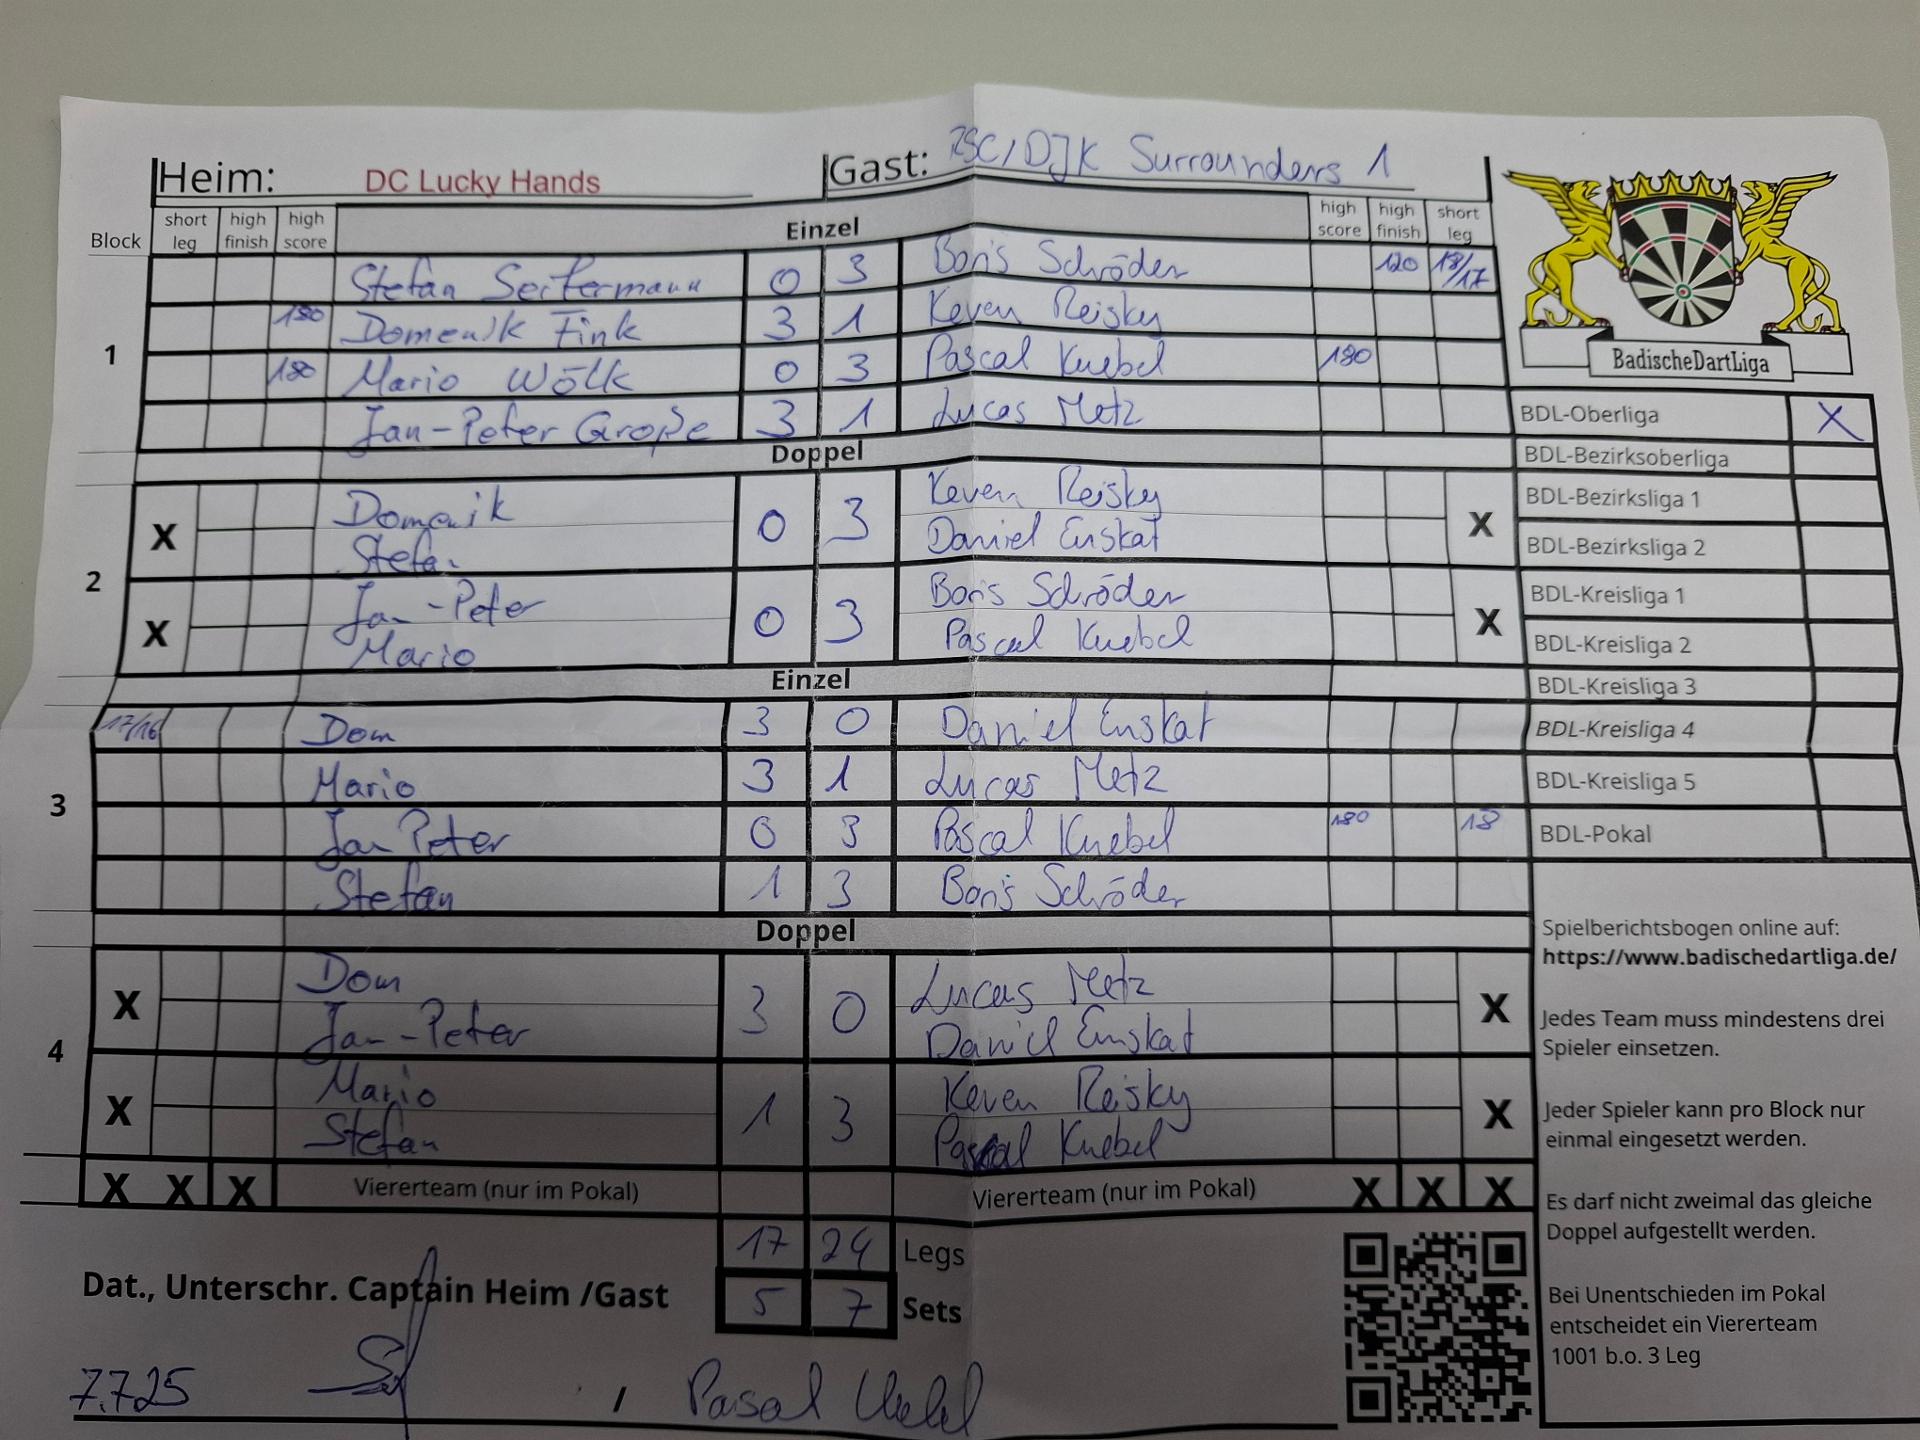 Heim: DC Lucky Hands Gast: RSC/DJK Surrounders 1
Block short leg high finish high score Einzel high score high finish short leg
1
Stefan Seitermann 0 3 Boris Schröder 120 18/17
180 Domenik Fink 3 1 Keven Reisky
180 Mario Wölk 0 3 Pascal Knebel 180
Jan-Peter Große 3 1 Lucas Metz
Doppel
2
X Domenik 0 3 Keven Reisky X
Stefan Daniel Enskat
X Jan-Peter 0 3 Boris Schröder X
Mario Pascal Knebel
Einzel
3
17/16 Dom 3 0 Daniel Enskat
Mario 3 1 Lucas Metz
Jan Peter 0 3 Pascal Knebel 180 18
Stefan 1 3 Boris Schröder
Doppel
4
X Dom 3 0 Lucas Metz X
Jan-Peter Daniel Enskat
X Mario 1 3 Keven Reisky X
Stefan Pascal Knebel
X X X Viererteam (nur im Pokal) Viererteam (nur im Pokal) X X X
17 24 Legs
5 7 Sets
Dat., Unterschr. Captain Heim /Gast
7.7.25 / Pascal Knebel
BadischeDartLiga
BDL-Oberliga X
BDL-Bezirksoberliga
BDL-Bezirksliga 1
BDL-Bezirksliga 2
BDL-Kreisliga 1
BDL-Kreisliga 2
BDL-Kreisliga 3
BDL-Kreisliga 4
BDL-Kreisliga 5
BDL-Pokal
Spielberichtsbogen online auf:
https://www.badischedartliga.de/
Jedes Team muss mindestens drei
Spieler einsetzen.
Jeder Spieler kann pro Block nur
einmal eingesetzt werden.
Es darf nicht zweimal das gleiche
Doppel aufgestellt werden.
Bei Unentschieden im Pokal
entscheidet ein Viererteam
1001 b.o. 3 Leg